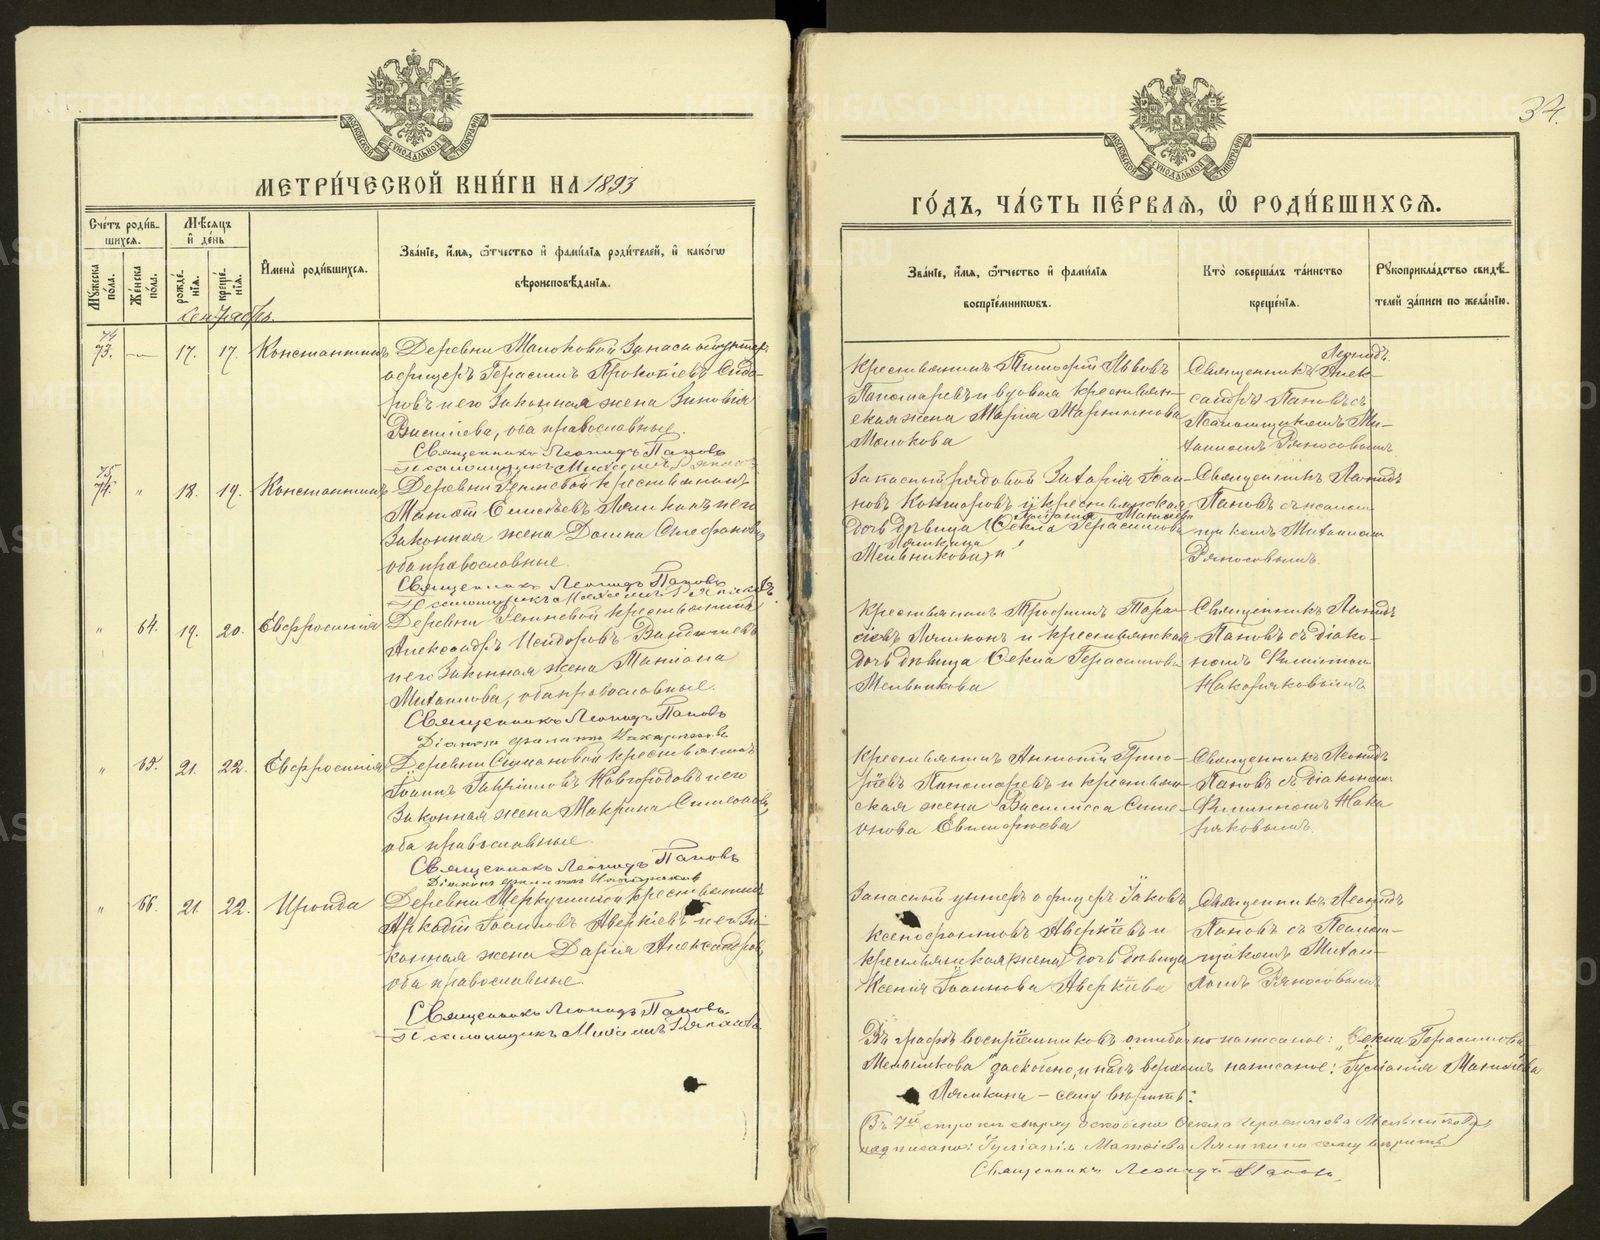 МЕТРИ́ЧЕСКОЙ КНИ́ГИ НА 1893
Счéтъ роди́в-
шихся.
Мѣсяцъ
и҆ дéнь
Мýжеска
пóла.
Жéнска
пóла.
рождé-
нїя.
крещé-
нїя.
И҆менà роди́вшихся.
Звáнїе, и҆́мя, ѻ҆́тчество и҆ фами́лїя роди́телей, и҆ какóгѡ
вѣроисповѣ́данїя.
Сентябрь.
74
73. — 17. 17. Константинъ
Деревни Молоковой Запасный унтеръ
офицеръ Герасимъ Прокопіевъ Сидо-
ровъ и его Законная жена Зиновія
Василіева, оба православные.
Священникъ Леонидъ Паповъ
Псаломщикъ Михаилъ Ряпосовъ
75
74. " 18. 19. Константинъ
Деревни крестьянинъ
Законная жена Домна Стефанова
оба православные.
Священникъ Леонидъ Паповъ
Псаломщикъ Михаилъ Ряпосовъ
" 64. 19. 20. Евфросинія
Деревни крестьянинъ
Александръ Исидоровъ
и его Законная жена Татіана
Михаилова, оба православные.
Священникъ Леонидъ Паповъ
Діаконъ Филиппъ Накаряковъ
" 65. 21. 22. Евфросинія
Деревни крестьянинъ
Іоаннъ Гавріиловъ Новгородовъ и его
Законная жена Макрина Симеонова,
оба православные.
Священникъ Леонидъ Паповъ
Діаконъ Филиппъ Накаряковъ
" 66. 21. 22. Ираида
Деревни Меркушиной крестьянинъ
Аркадій Іоанновъ Аверкіевъ и его За-
конная жена Дарія Александрова,
оба православные.
Священникъ Леонидъ Паповъ
Псаломщикъ Михаилъ Ряпосовъ
34.
ГÓДЪ, ЧÁСТЬ ПÉРВАЯ, Ѡ҆ РОДИ́ВШИХСЯ.
Звáнїе, и҆́мя, ѻ҆́тчество и҆ фами́лїя
воспрїéмникѡвъ.
Ктò совершáлъ тáинство
крещéнїя.
Рукоприклáдство свидѣ́-
телей зáписи по желáнїю.
Крестьянинъ Тимофей Львовъ
Пономаревъ и вдовая крестьян-
ская жена Марія Мартынова
Молокова
Леонидъ
Священникъ Алек-
сандръ Паповъ съ
Псаломщикомъ Ми-
хаиломъ Ряпосовымъ
Запасный рядовой Захарія Іоан-
новъ и крестьянская
Матѳіева
дочь дѣвица Ѳекла Герасимова
Лямкина
Мельникова
Священникъ Леонидъ
Паповъ съ псалом-
щикомъ Михаиломъ
Ряпосовымъ.
Крестьянинъ Трофимъ Тара-
сіевъ Лямкинъ и крестьянская
дочь дѣвица Ѳекла Герасимова
Мельникова
Священникъ Леонидъ
Паповъ съ діако-
номъ Филиппомъ
Накаряковымъ
Крестьянинъ Антоній Григо-
ріевъ Пономаревъ и крестьян-
ская жена Василисса Симе-
онова
Священникъ Леонидъ
Паповъ съ діакономъ
Филиппомъ Нака-
ряковымъ.
Запасный унтеръ офицеръ Іаковъ
Ксенофонтовъ Аверкіевъ и
крестьянская (жена) дочь дѣвица
Ксенія Іоаннова Аверкіева
Священникъ Леонидъ
Паповъ съ Псалом-
щикомъ Михаи-
ломъ Ряпосовымъ
Въ графѣ воспріемниковъ ошибочно написаное: „Ѳекла Герасимова
Мельникова" заскоблено, и надъ верхомъ написаное: Іуліанія Матѳіева
Лямкина — сему вѣрить:
Въ 7ой строкѣ сверху Ѳекла Герасимова Мельникова
надписано: Іуліанія Матѳіева Лямкина сему вѣрить
Священникъ Леонидъ Паповъ.